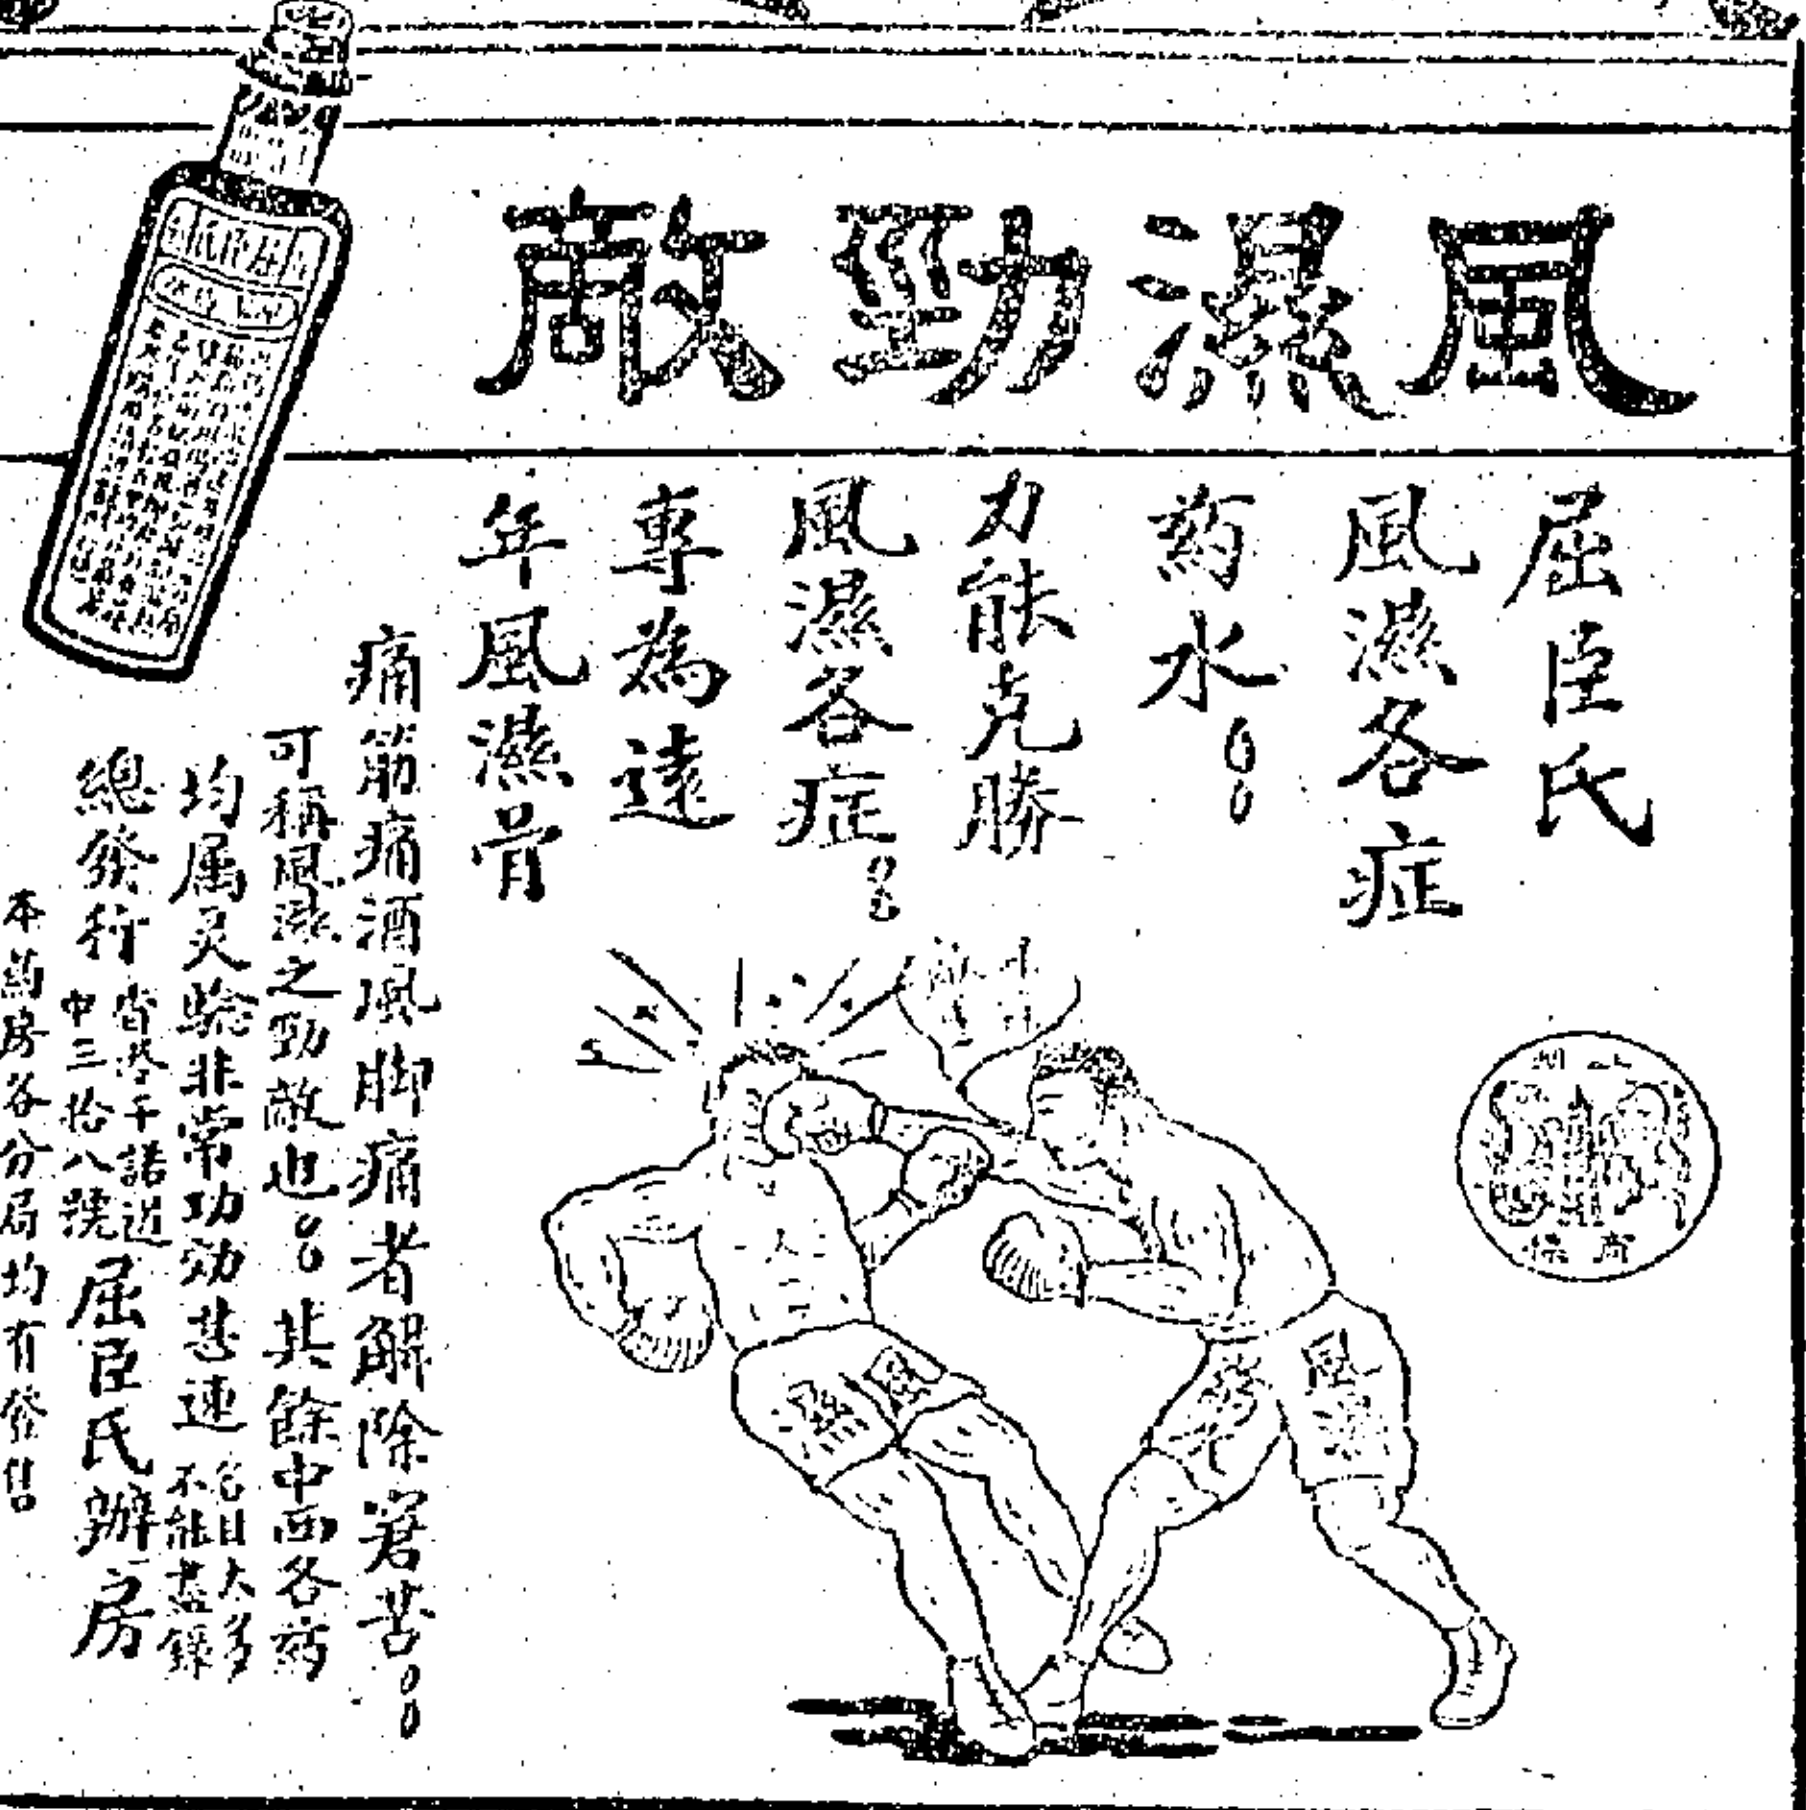 風濕勁敵
屈臣氏
風濕各症
葯水
力能克勝
風濕各症
專為遠
年風濕骨
痛筋痛酒風脚痛者解除窘苦
可稱風濕之勁敵也其餘中西各葯
均属灵驗非常功効甚速
名目太多
不能盡錄
總發行
香港干諾道
中三拾八號
屈臣氏辦房
本葯房各分局均有發售
風濕
風濕
葯水
商標